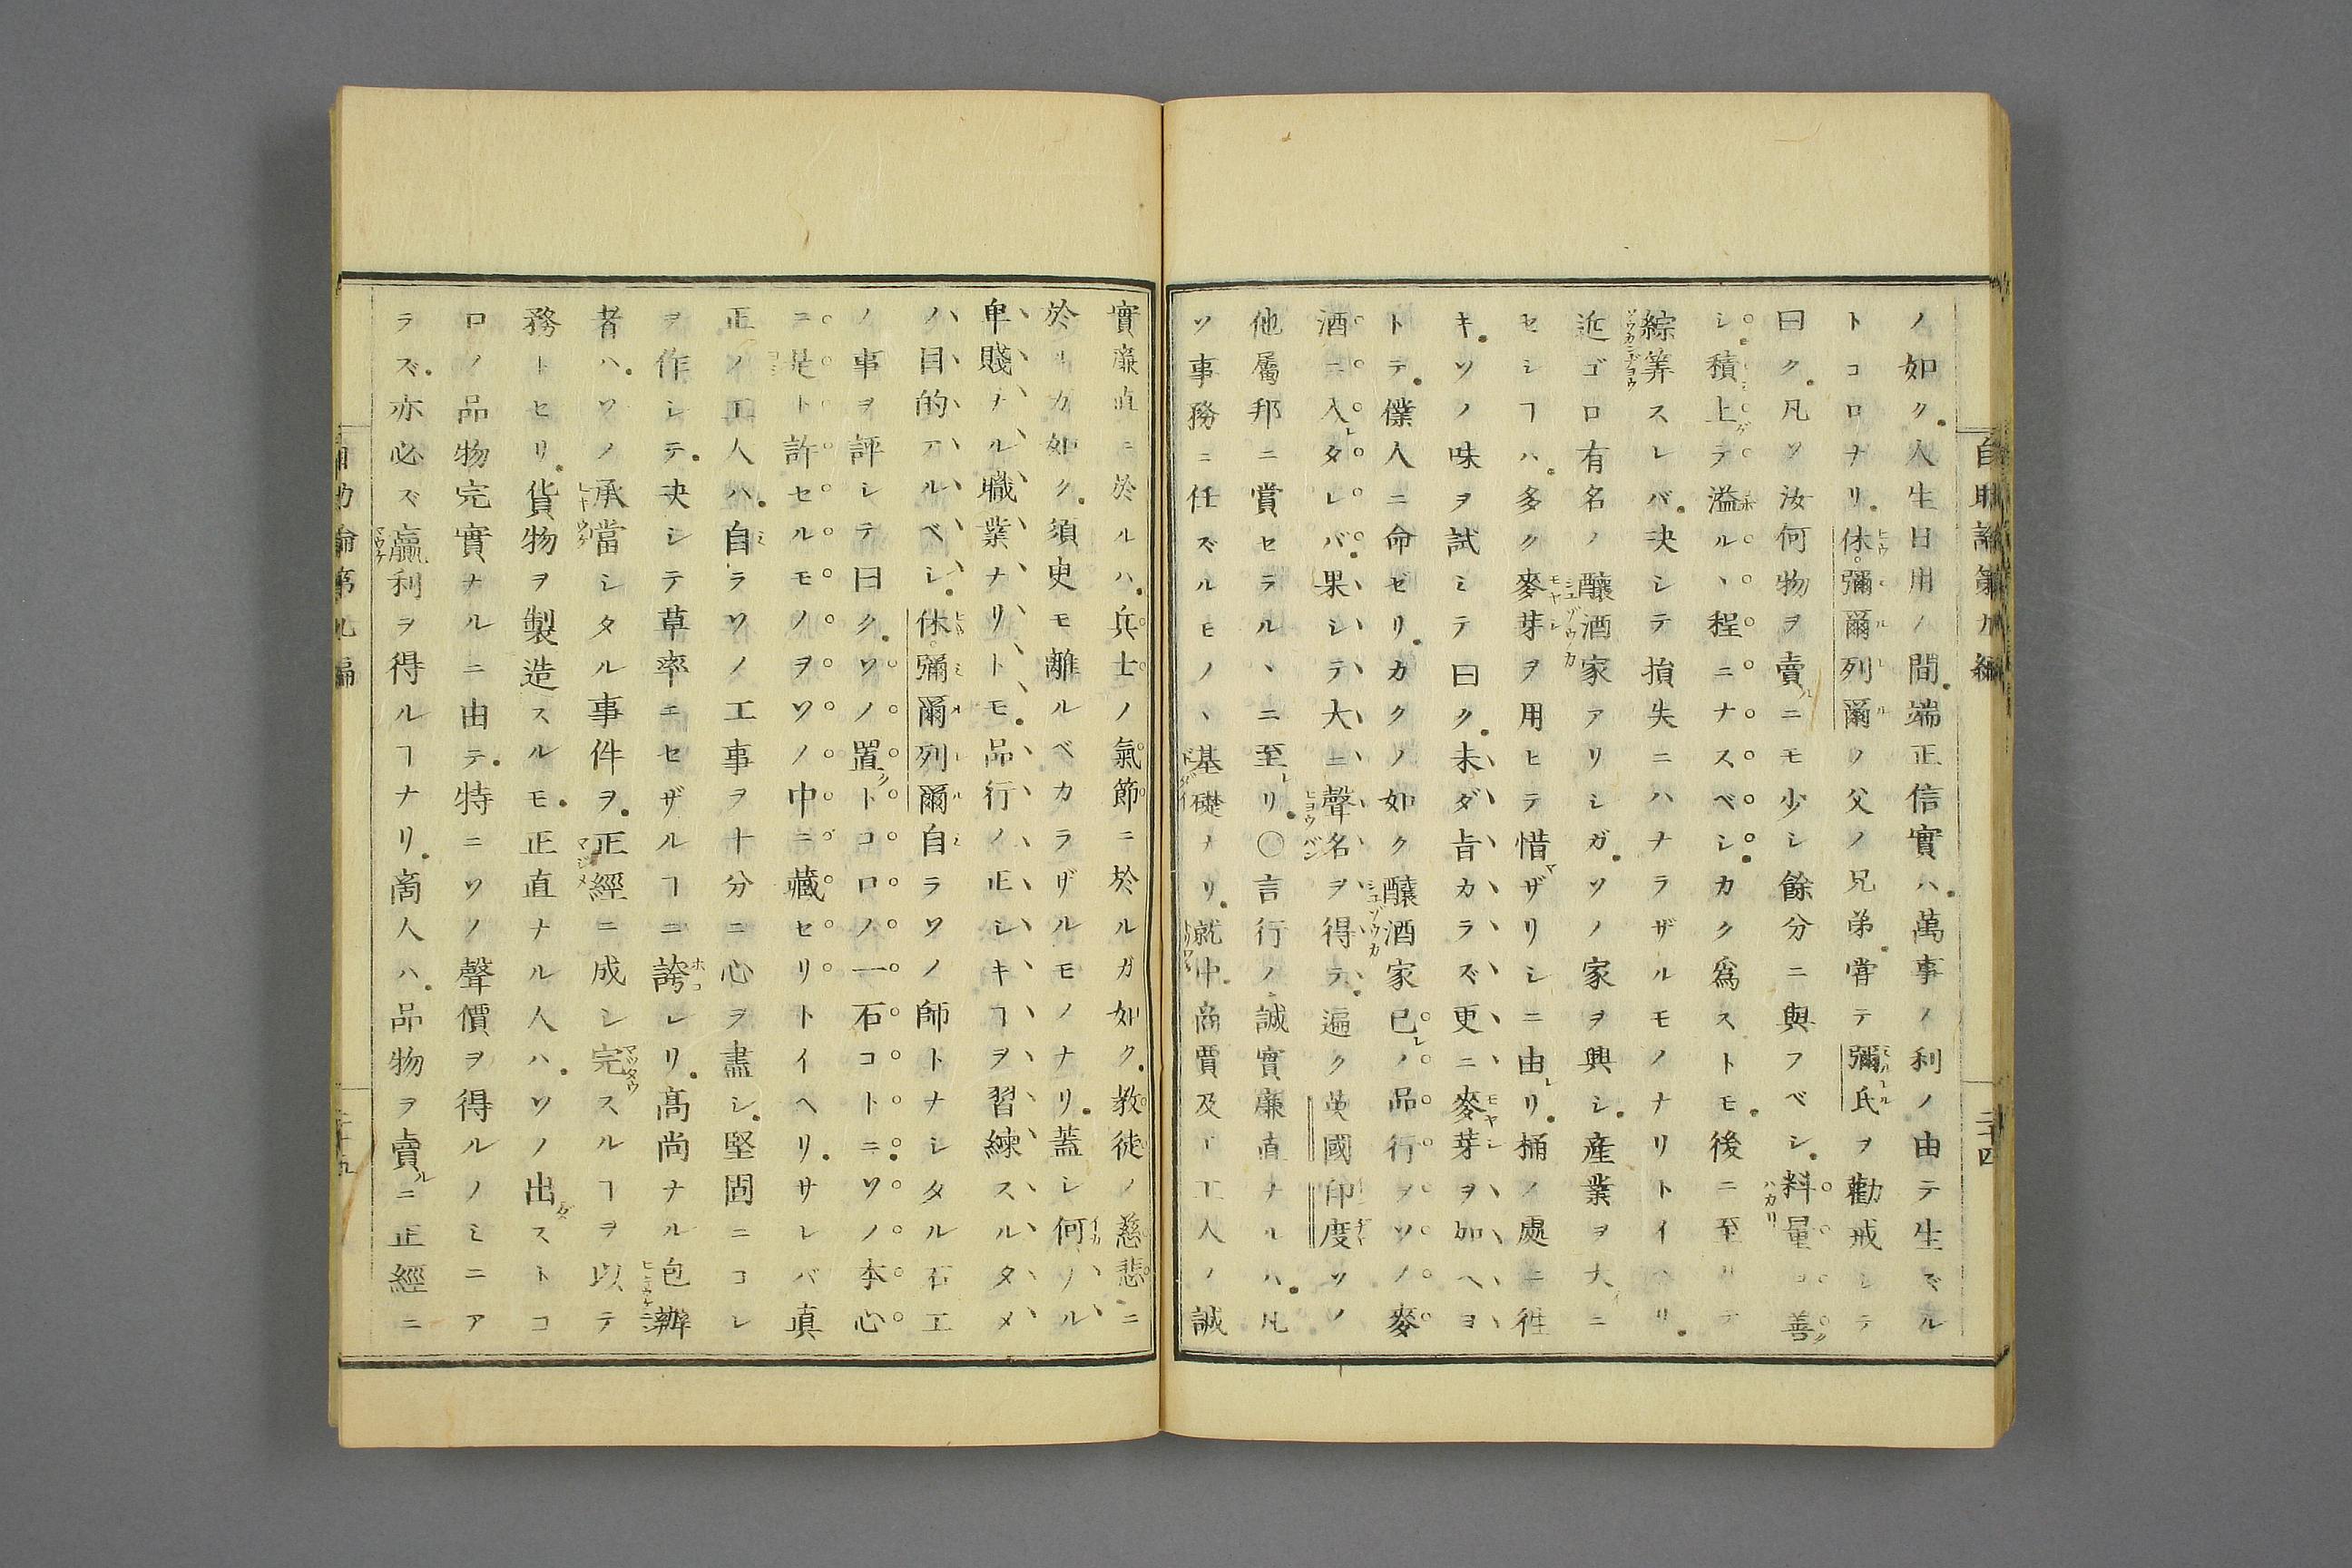 自助論第九編
二十四
ノ如ク人生日用ノ間端正信實ハ萬事ノ利ノ由テ生ズル
トコロナリ休彌爾列爾ノ父ノ兄弟甞テ彌氏ヲ勸戒シテ
曰ク凡ソ汝何物ヲ賣ルニモ少シ餘分ニ與フベシ料量ヲ善ク
シ積上ゲテ溢ルヽ程ニナスベシカク爲ストモ後ニ至リテ
綜筭スレバ決シテ損失ニハナラザルモノナリトイヘリ
近ゴロ有名ノ釀酒家アリシガソノ家ヲ興シ產業ヲ大ニ
セシヿハ多ク麥芽ヲ用ヒテ惜マザリシニ由レリ桶ノ處ニ徃
キソノ味ヲ試ミテ曰ク未ダ旨カラズ更ニ麥芽ヲ加ヘヨ
トテ僕人ニ命ゼリカクノ如ク釀酒家己レノ品行ヲソノ麥
酒ニ入レタレバ果シテ大ニ聲名ヲ得テ遍ク英國印度ソノ
他屬邦ニ賞セラルヽニ至レリ〇言行ノ誠實廉直ナルハ凡
ソ事務ニ任ズルモノヽ基礎ナリ就中商賈及ビ工人ノ誠
實廉直ニ於ルハ兵士ノ氣節ニ於ルガ如ク教徒ノ慈悲ニ
於ルガ如ク須臾モ離ルベカラザルモノナリ蓋シ何ノル
卑賤ナル職業ナリトモ品行ノ正シキヿヲ習練スルタメ
ハ目的アルベシ休彌爾列爾自ラソノ師トナシタル石工
ノ事ヲ評シテ曰クソノ置クトコロノ一石コトニソノ本心
ニ是ト許セルモノヲソノ中ニ藏セリトイヘリサレバ真
正ノ工人ハ自ラソノ工事ヲ十分ニ心ヲ盡シ堅固ニコレ
ヲ作シテ決シテ草率ニセザルヿニ誇レリ高尚ナル包辦
者ハソノ承當シタル事件ヲ正經ニ成シ完スルヿヲ以テ
務トセリ貨物ヲ製造スルモ正直ナル人ハソノ出ダストコ
ロノ品物完實ナルニ由テ特ニソノ聲價ヲ得ルノミニア
ラズ亦必ズ贏利ヲ得ルヿナリ商人ハ品物ヲ賣ルニ正經ニ
自助論第九編
二十九